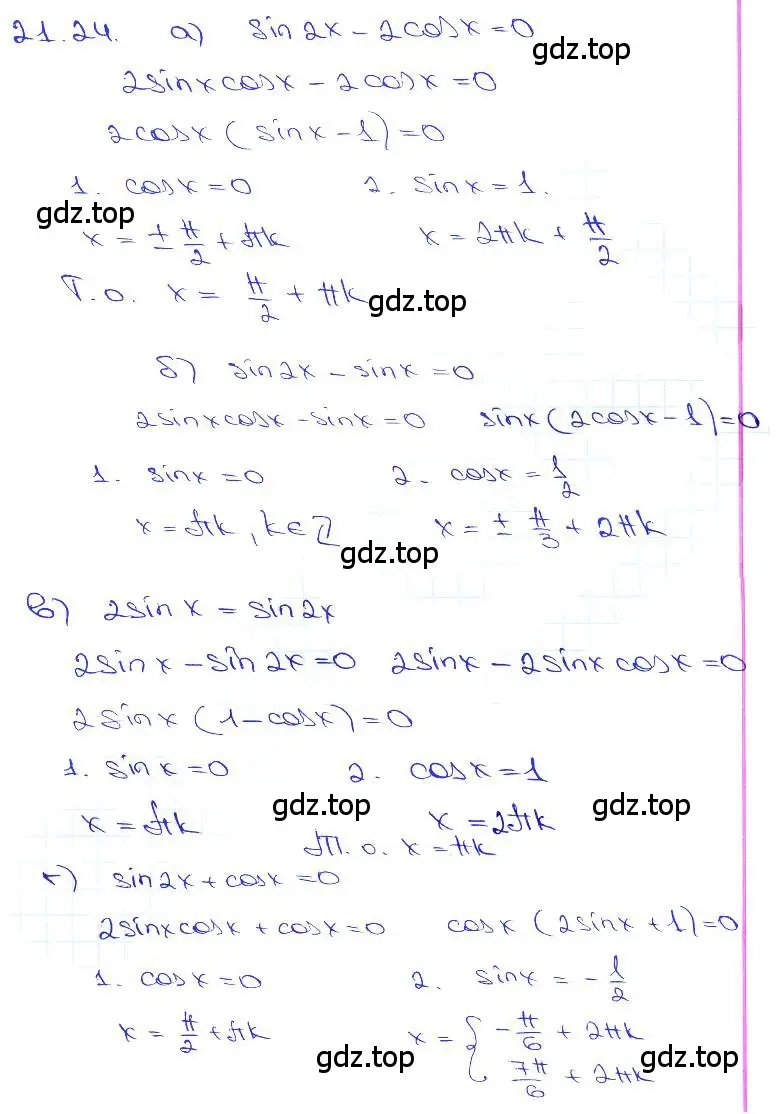 21.24. а) sin2x - 2cosx = 0
gdz.top
2sinxcosx - 2cosx = 0
2cosx (sinx - 1) = 0
1. cosx = 0 2. sinx = 1.
gdz.top
x = ± π/2 + πk x = 2πk + π/2
Т.о. x = π/2 + πk
gdz.top
б) sin2x - sinx = 0
2sinxcosx - sinx = 0 sinx (2cosx - 1) = 0
1. sinx = 0 2. cosx = 1/2
x = πk, k ∈ Z x = ± π/3 + 2πk
gdz.top
в) 2sin x = sin2x
2sin x - sin 2x = 0 2sinx - 2sinx cosx = 0
2sinx (1 - cosx) = 0
1. sin x = 0 2. cosx = 1
gdz.top gdz.top
x = πk x = 2πk
Т.о. x = πk
г) sin2x + cosx = 0
2sinxcosx + cosx = 0 cosx (2sinx + 1) = 0
1. cosx = 0 2. sinx = - 1/2
x = π/2 + πk x = { - π/6 + 2πk
7π/6 + 2πk
gdz.top gdz.top